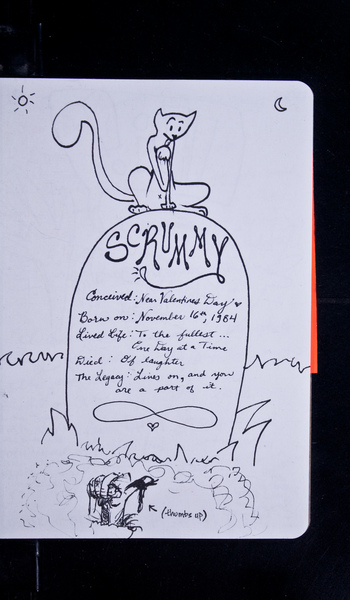 SCRUMMY
Conceived: Near Valentines Day
Born on: November 16th, 1984
Lived Life: To the fullest...
One Day at a Time
Died: Of laughter
The Legacy: Lives on, and you
are a part of it.
(thumbs up)